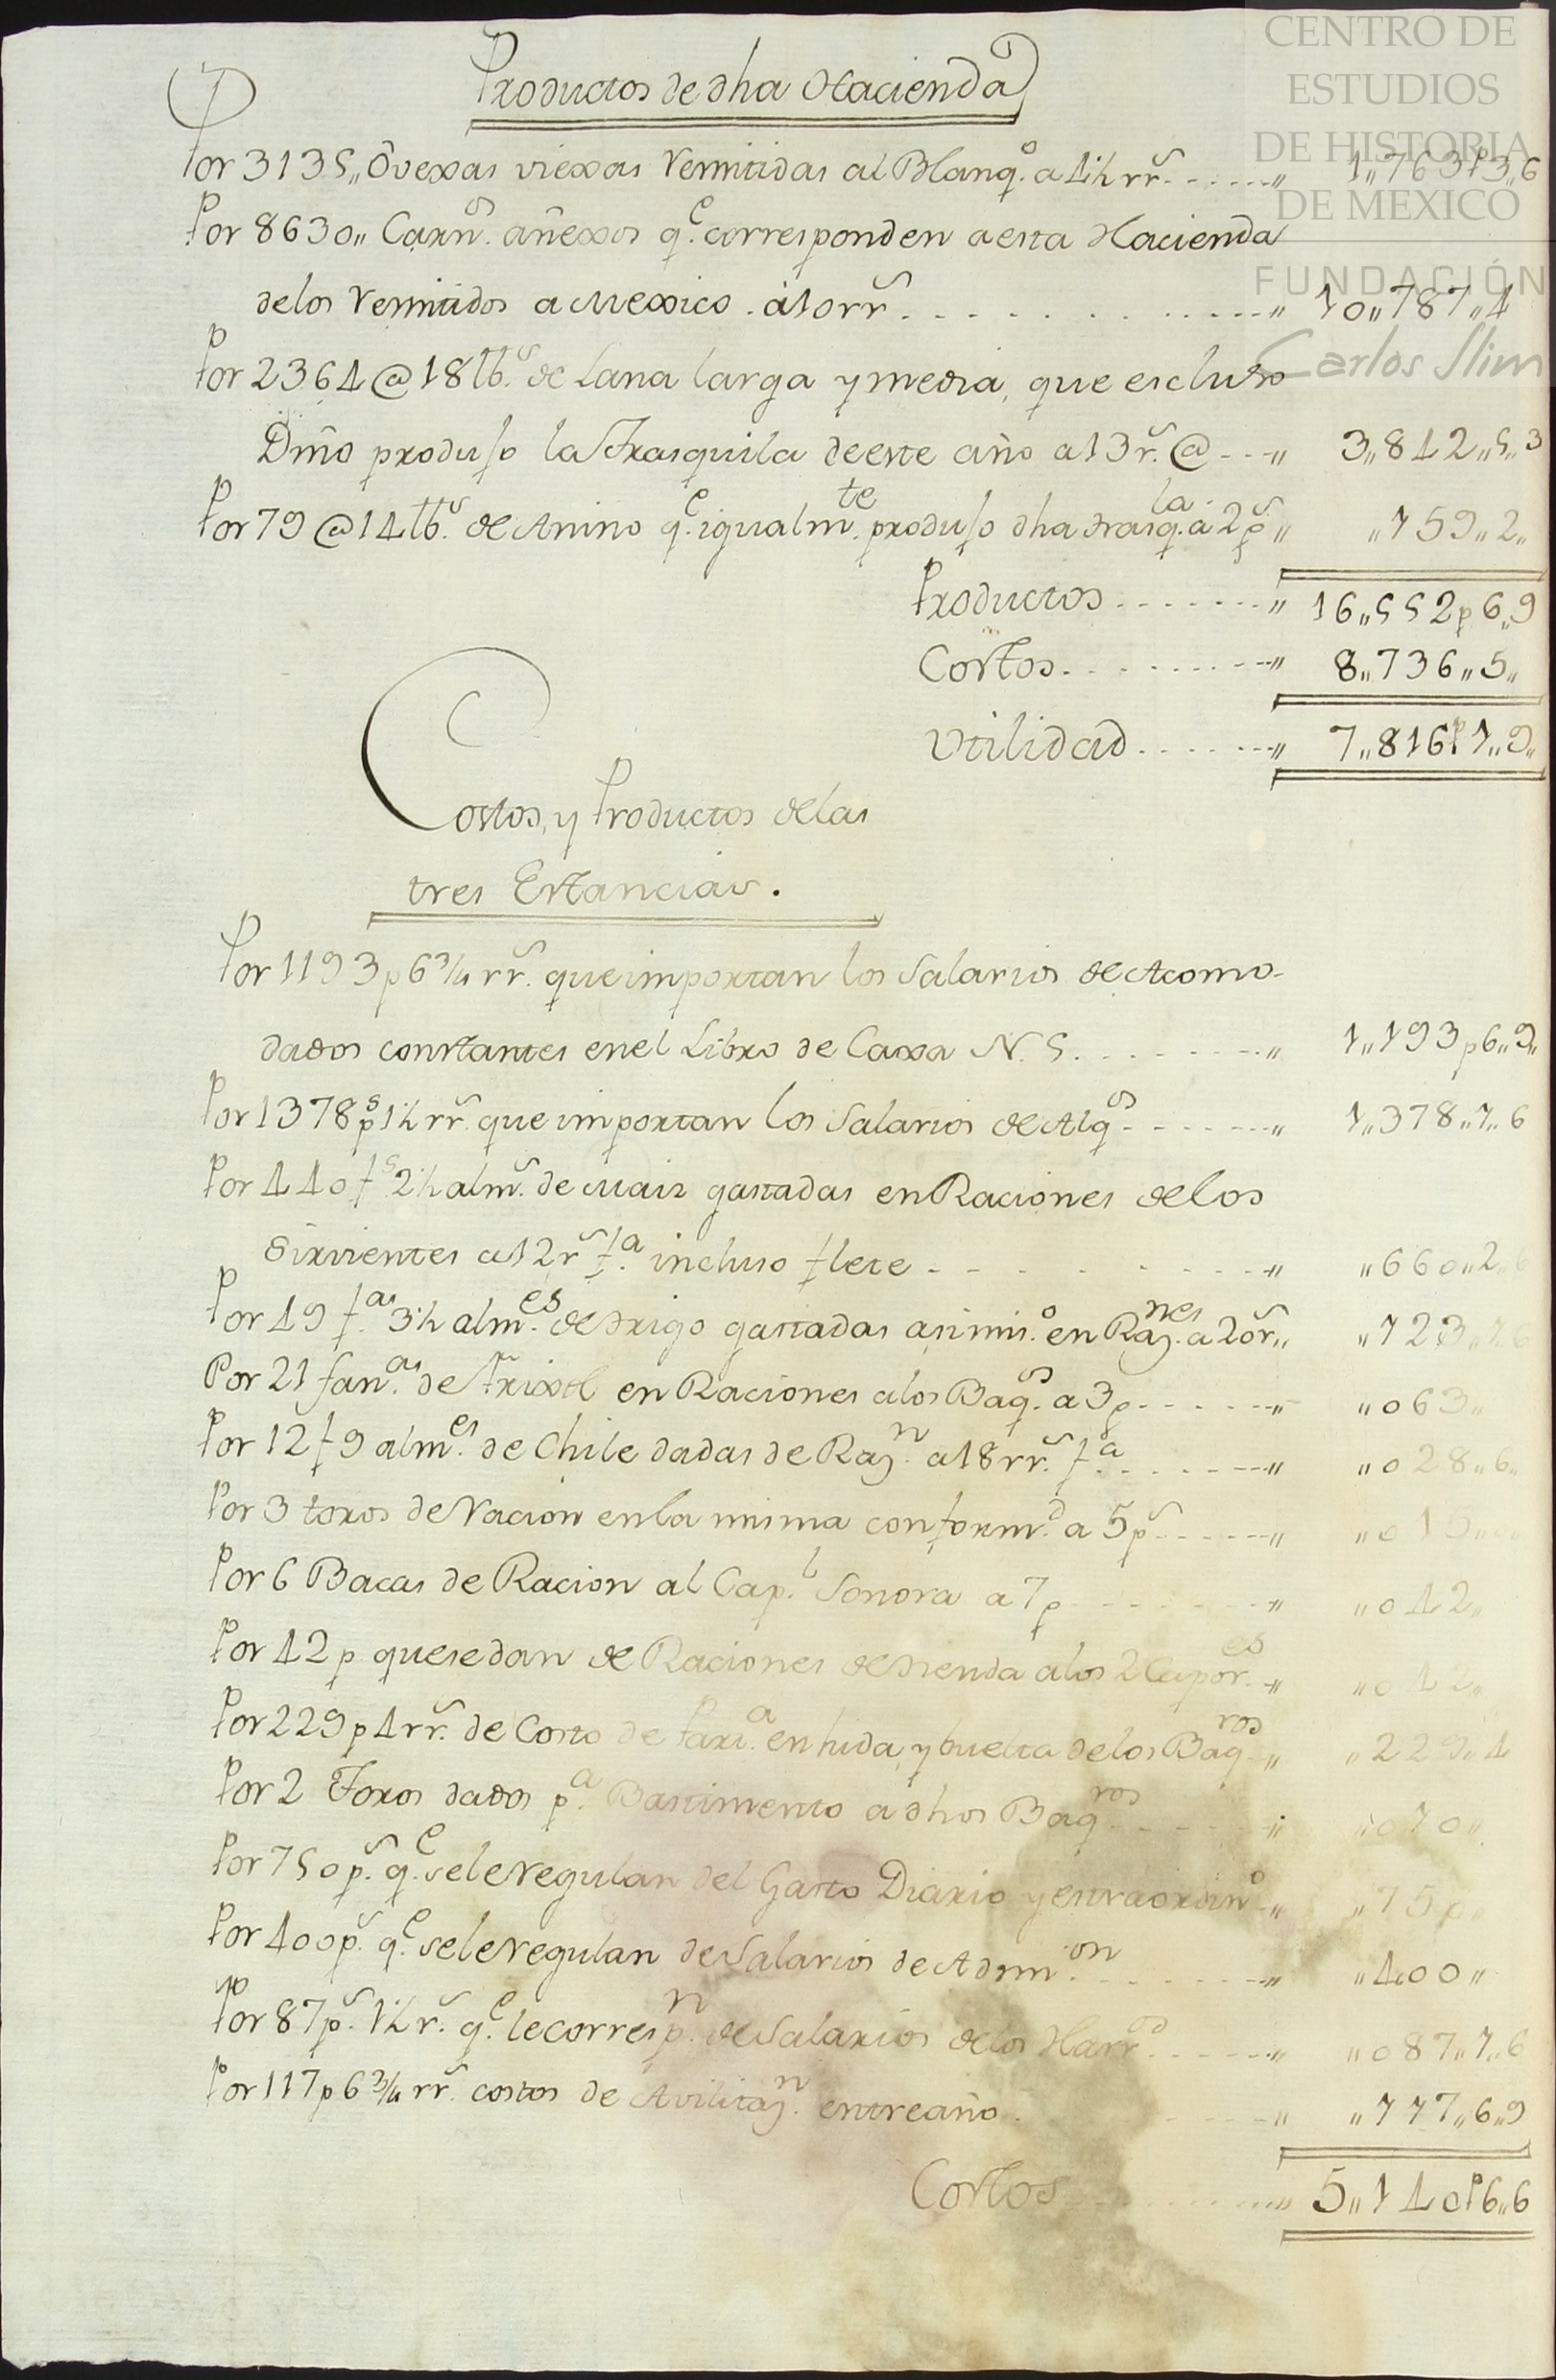 CENTRO DE
ESTUDIOS
DE HISTORIA
DE MEXICO
FUNDACIÓN
Carlos Slim
Productos de dha Hacienda
Por 3135,, Ovexas viexas remitidas al Blanq.º a 4½ rr.s ,, 1,,763p3,,6
Por 8630,, Carn.s añexos q.e corresponden aesta Hacienda
delos remitidos a Mexico. á 10 rr.s ,, 10,,787,,4
Por 2364 @ 18 lb.s de Lana larga y media, que escluso
Dmõ produjo la Trasquila deeste año a 13 r.s @ ,, 3,,842,,5,,3
Por 79 @ 14 lb.s de Anino q.e igualm.te produjo dha trasq.la a 2 p.s ,, ,,159,,2,,
Productos ,, 16,,552p6,,9
Costos ,, 8,,736,,5,,
Utilidad ,, 7,,816p1,,9,,
Costos, y Productos delas
tres Estancias.
Por 1193 p 6¾ rr.s queimportan los Salarios de Acomo-
dados constantes enel Libro de Caxa N. 5 ,, 1,,193p6,,9,,
Por 1378 p.s 1½ rr.s que importan los Salarios de Alq.s ,, 1,,378,,1,,6
Por 440 f.s 2½ alm.s de Maiz gastadas en Raciones delos
Sirvientes a 12 r.s f.a incluso flete ,, ,,660,,2,,6
Por 49 f.as 3½ alm.es de trigo gastadas asimis.º en Raz.nes a 20 r.s ,, ,,123,,1,,6
Por 21 fan.as de Frixol en Raciones alos Baq.s a 3 p ,, ,,063,,
Por 12 f 9 alm.es de Chile dadas de Raz.n a 18 rr.s f.a ,, ,,028,,6,,
Por 3 toros de racion enla misma conform.d a 5 p.s ,, ,,015,,0,,
Por 6 Bacas de Racion al Cap.l Sonora a 7 p ,, ,,042,,
Por 42 p quesedan de Raciones detienda alos 2 Capor.es ,, ,,042,,
Por 229 p 4 rr.s de Costo de Fari.a en hida, y buelta delos Baq.ros ,, ,,229,,4
Por 2 Toros dados p.a Bastimento a dhos Baq.ros ,, ,,010,,
Por 750 p.s q.e seleregulan del Gasto Diario y extraordin.º ,, ,,750,,
Por 400 p.s q.e seleregulan deSalarios de Adm.on ,, ,,400,,
Por 87 p.s 1½ r.s q.e lecorresp.n deSalarios delos Harr.s ,, ,,087,,1,,6
Por 117 p 6¾ rr.s costos de Avilitaz.n entreaño. ,, ,,117,,6,,9
Costos ,, 5,,140p6,,6